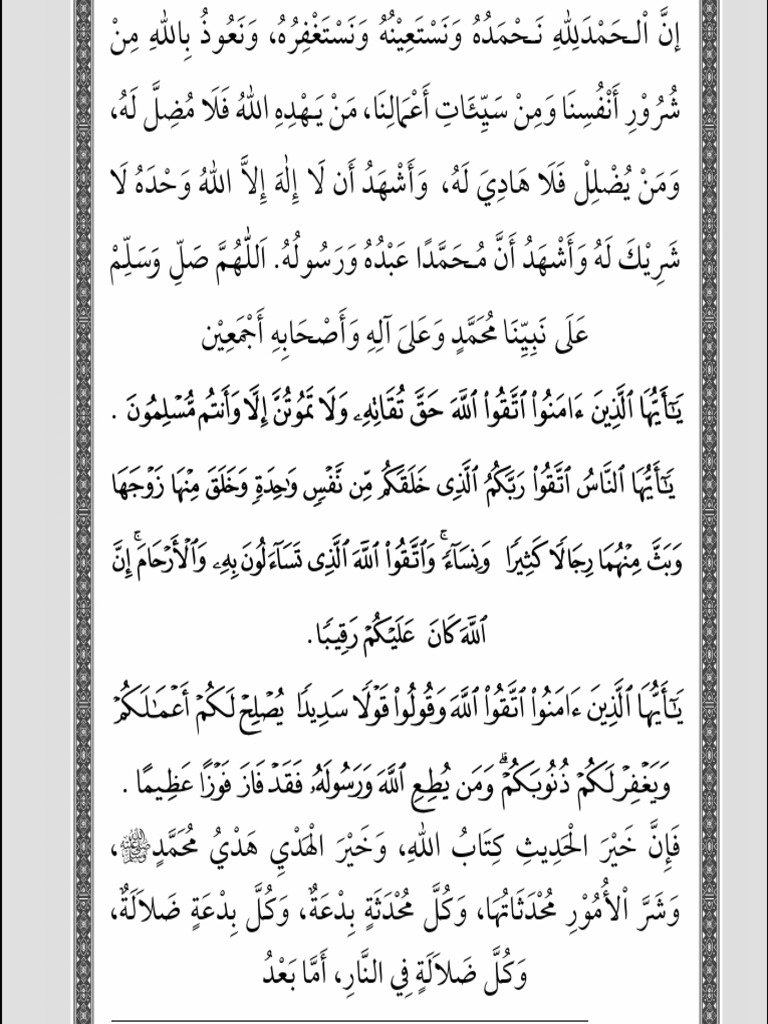 إنَّ اْلـحَمْدَلِلّٰهِ نَـحْمَدُهُ وَنَسْتَعِيْنُهُ وَنَسْتَغْفِرُهُ، وَنَعُوذُ بِاللهِ مِنْ
شُرُوْرِ أَنْفُسِنَا وَمِنْ سَيِّئَاتِ أَعْمَالِنَا، مَنْ يَـهْدِهِ اللهُ فَلَا مُضِلَّ لَهُ،
وَمَنْ يُضْلِلْ فَلَا هَادِيَ لَهُ، وَأَشْهَدُ أَن لَا إِلٰهَ إِلاَّ اللهُ وَحْدَهُ لَا
شَرِيْكَ لَهُ وَأَشْهَدُ أَنَّ مُـحَمَّدًا عَبْدُهُ وَرَسُولُهُ. اَللّٰهُمَّ صَلِّ وَسَلِّمْ
عَلَى نَبِيِّنَا مُحَمَّدٍ وَعَلىَ آلِهِ وَأَصْحَابِهِ أَجْمَعِيْن
يَـٰٓأَيُّهَا ٱلَّذِينَ ءَامَنُوا۟ ٱتَّقُوا۟ ٱللَّهَ حَقَّ تُقَاتِهِۦ وَلَا تَمُوتُنَّ إِلَّا وَأَنتُم مُّسْلِمُونَ .
يَـٰٓأَيُّهَا ٱلنَّاسُ ٱتَّقُوا۟ رَبَّكُمُ ٱلَّذِى خَلَقَكُم مِّن نَّفْسٍ وَٰحِدَةٍ وَخَلَقَ مِنْهَا زَوْجَهَا
وَبَثَّ مِنْهُمَا رِجَالًا كَثِيرًا وَنِسَآءً ۚ وَٱتَّقُوا۟ ٱللَّهَ ٱلَّذِى تَسَآءَلُونَ بِهِۦ وَٱلْأَرْحَامَ ۚ إِنَّ
ٱللَّهَ كَانَ عَلَيْكُمْ رَقِيبًا.
يَـٰٓأَيُّهَا ٱلَّذِينَ ءَامَنُوا۟ ٱتَّقُوا۟ ٱللَّهَ وَقُولُوا۟ قَوْلًا سَدِيدًا يُصْلِحْ لَكُمْ أَعْمَـٰلَكُمْ
وَيَغْفِرْ لَكُمْ ذُنُوبَكُمْ ۗ وَمَن يُطِعِ ٱللَّهَ وَرَسُولَهُۥ فَقَدْ فَازَ فَوْزًا عَظِيمًا .
فَإِنَّ خَيْرَ الْحَدِيثِ كِتَابُ اللهِ، وَخَيْرَ الْهَدْيِ هَدْيُ مُحَمَّدٍ ﷺ ،
وَشَرَّ اْلأُمُوْرِ مُحْدَثَاتُهَا، وَكُلَّ مُحْدَثَةٍ بِدْعَةٌ، وَكُلَّ بِدْعَةٍ ضَلاَلَةٌ،
وَكُلَّ ضَلاَلَةٍ فِي النَّارِ، أَمَّا بَعْدُ